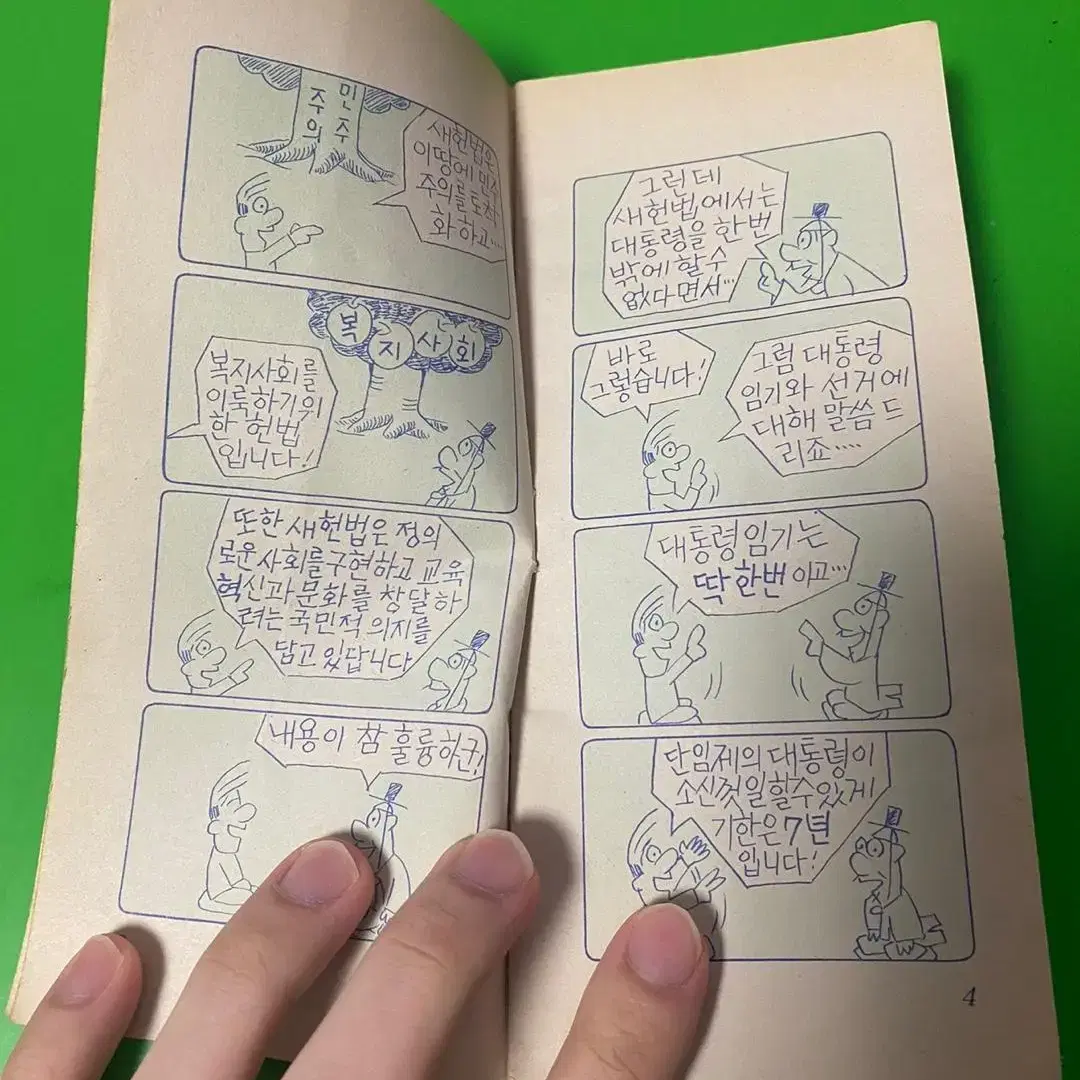 민주
주의
새헌법은
이땅에 민주
주의를 토착
화 하고....
복지사회
복지사회를
이룩하기위
한 헌법
입니다!
또한 새헌법은 정의
로운 사회를 구현하고 교육
혁신과 문화를 창달하
려는 국민적 의지를
담고 있답니다
내용이 참 훌륭하군!
그런데
새헌법에서는
대통령을 한번
밖에 할수
없다면서...
바로
그렇습니다!
그럼 대통령
임기와 선거에
대해 말씀 드
리죠.....
대통령 임기는
딱 한번 이고...
단임제의 대통령이
소신껏 일할수 있게
기한은 7년
입니다!
4